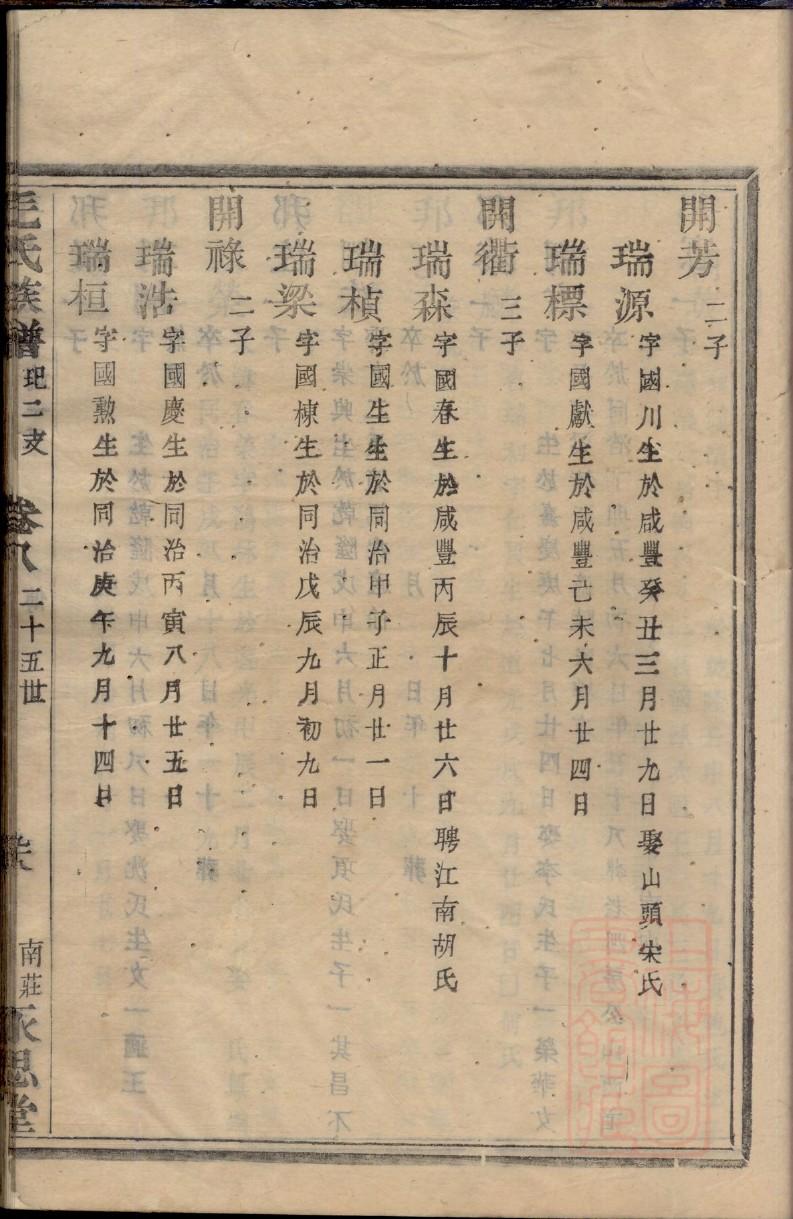 開芳 二子
瑞源 字國川生於咸豐癸丑三月廿九日娶山頭宋氏
瑞標 字國獻生於咸豐己未六月廿四日
開衢 三子
瑞森 字國春生於咸豐丙辰十月廿六日聘江南胡氏
瑞楨 字國生生於同治甲子正月廿一日
瑞梁 字國棟生於同治戊辰九月初九日
開祿 二子
瑞浩 字國慶生於同治丙寅八月廿五日
瑞桓 字國勲生於同治庚午九月十四日
毛氏族譜 玘二支 卷八 二十五世 南莊永思堂